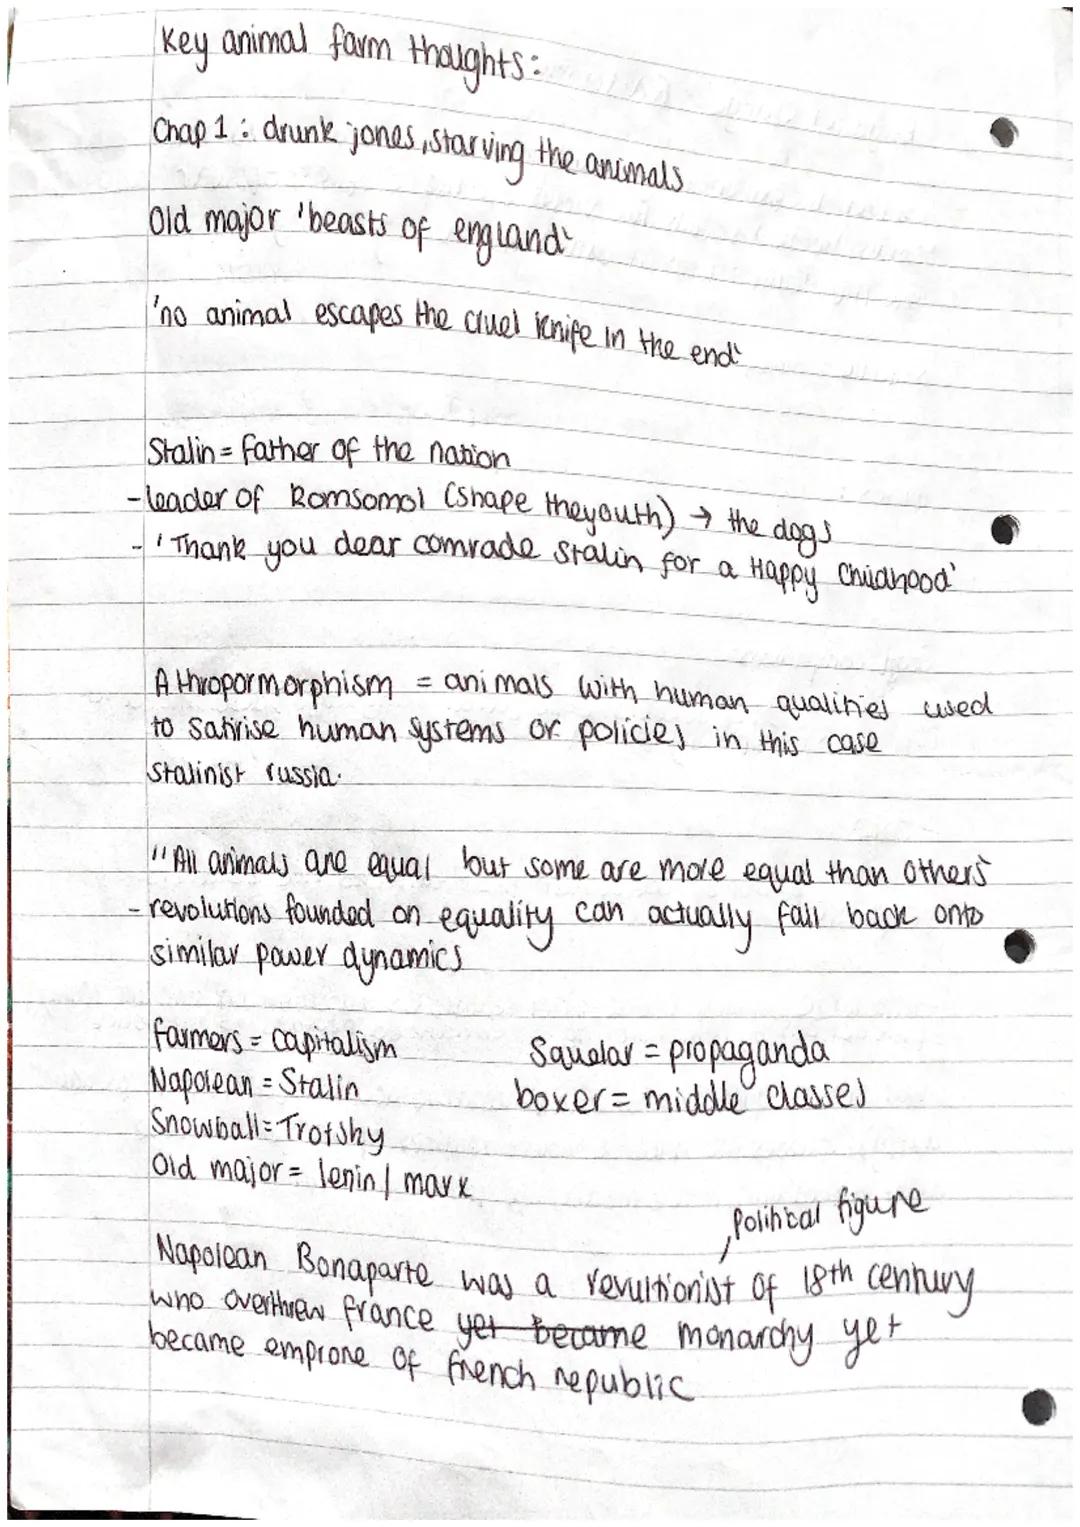 Key animal farm thoughts:
Chap 1: drunk jones, starving the animals
Old major 'beasts of england'
'no animal escapes the cruel knife in the end'
Stalin = father of the nation
- leader of Komsomol (shape the youth) → the dogs
- 'Thank you dear comrade stalin for a Happy Childhood'
Athropormorphism = animals with human qualities used
to satirise human systems or policies in this case
Stalinist russia.
"All animals are equal but some are more equal than others"
- revolutions founded on equality can actually fall back onto
similar power dynamics
farmers = capitalism
Squelar = propaganda
Napolean = Stalin
boxer = middle classes
Snowball = Trotsky
Old major = lenin / marx
political figure
Napolean Bonaparte was a revultionist of 18th century
who overthrew france yet became monarchy yet
became emprone of french republic